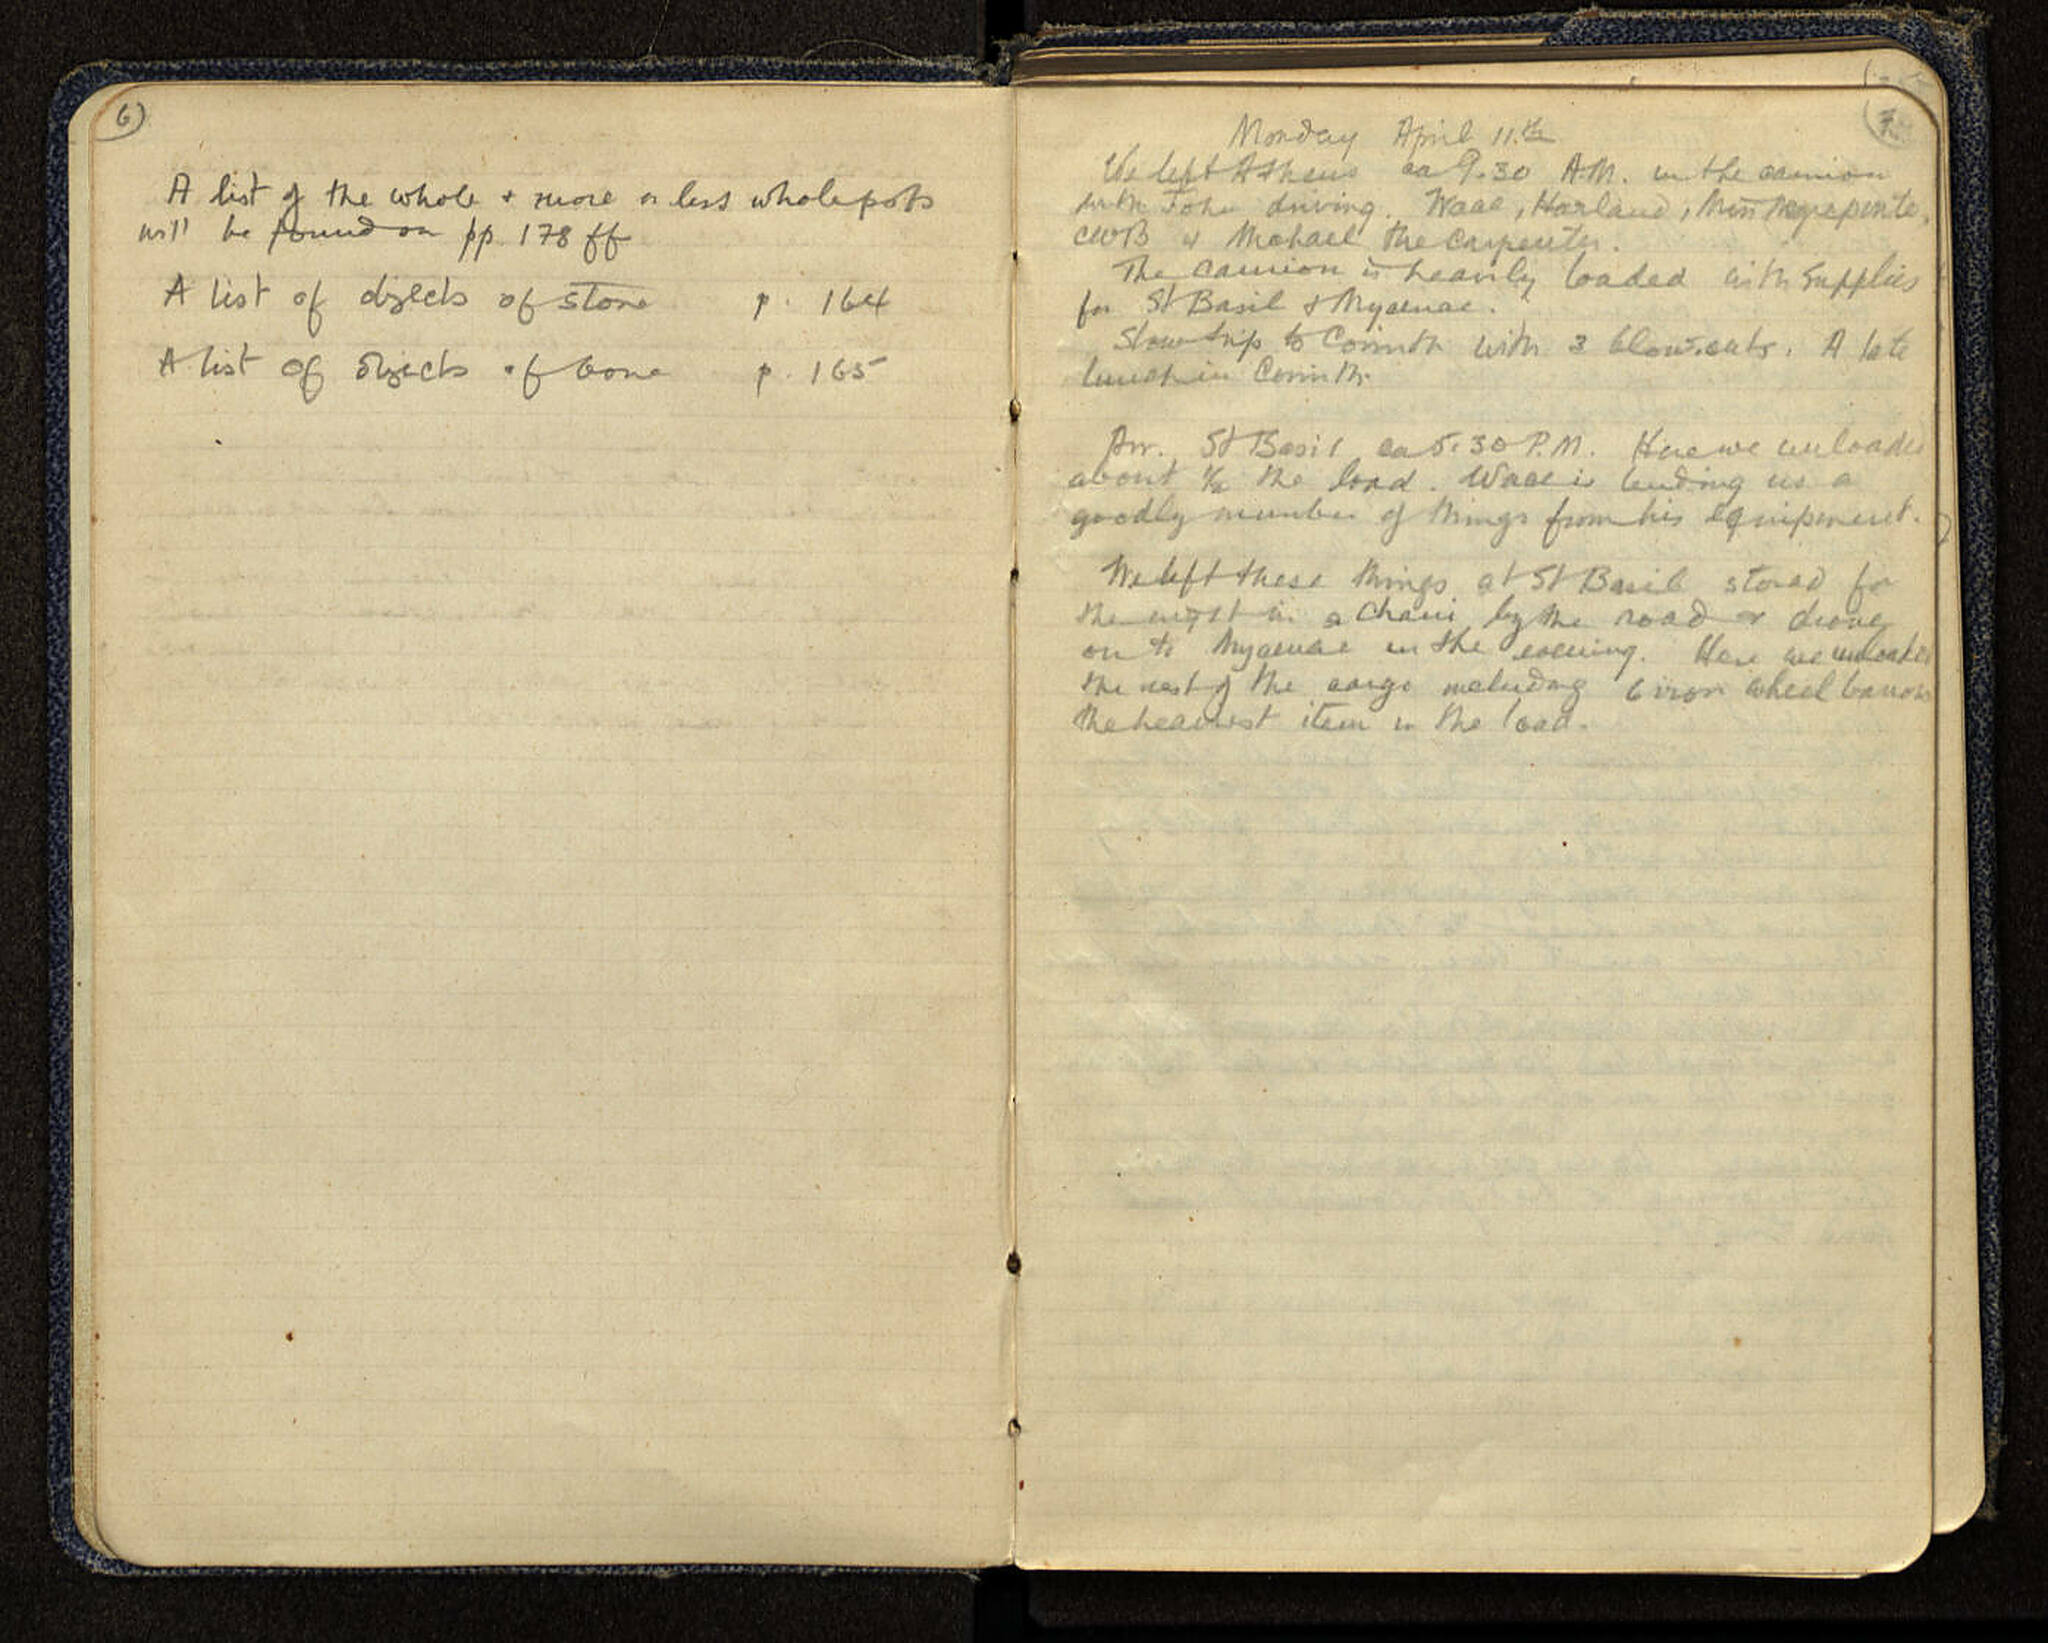 6)
A list of the whole + more or less whole pots
will be found on pp. 178 ff
A list of objects of stone p. 164
A list of objects of bone p. 165
7
Monday April 11.th
We left Athens ca 9.30 A.M. in the camion
with John driving. Wace, Harland, Miss
CWB & Michael the carpenter.
The camion is heavily loaded with supplies
for St Basil & Mycenae.
Slow trip to Corinth with 3 blow-outs. A late
lunch in Corinth.
Arr. St Basil ca 5.30 P.M. Here we unloaded
about ½ the load. Wace is lending us a
goodly number of things from his equipment.
We left these things at St Basil stored for
the night in a chani by the road & drove
on to Mycenae in the evening. Here we unloaded
the rest of the cargo including 6 iron wheel barrows
the heaviest item in the load.